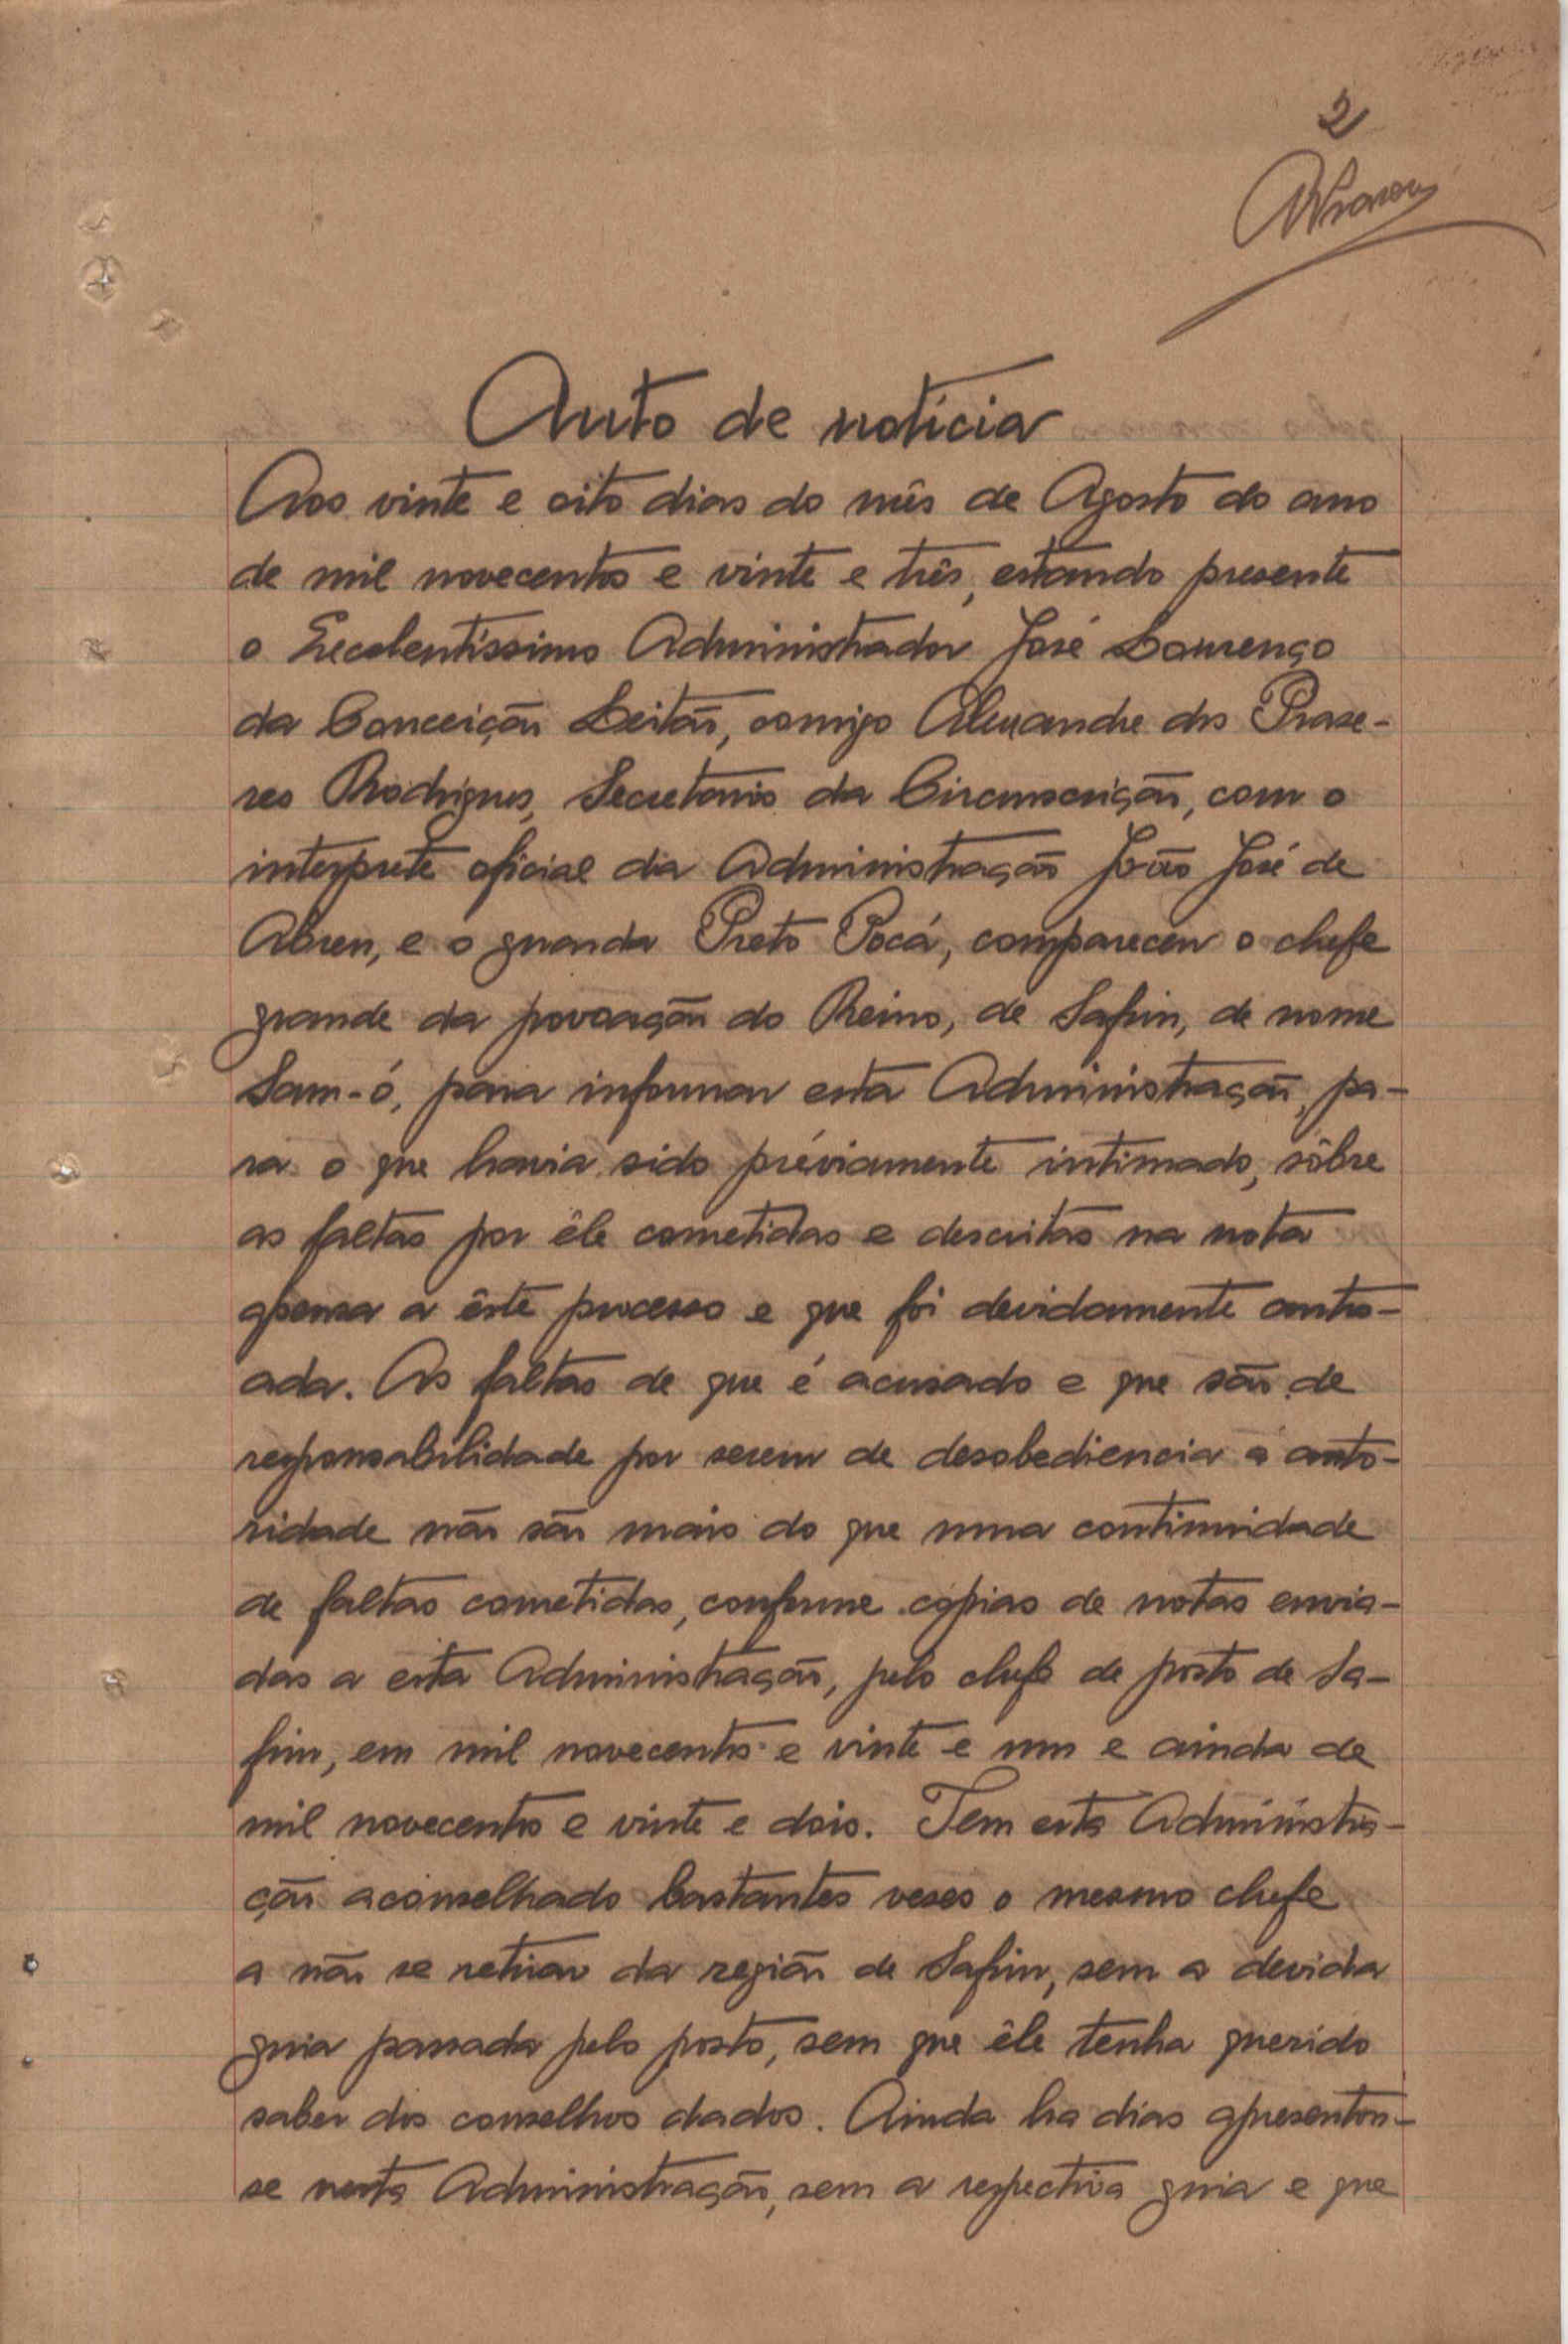 2
Auto de notícia
Aos vinte e oito dias do mês de Agosto do ano
de mil novecentos e vinte e três, estando presente
o Excelentíssimo Administrador José Lourenço
da Conceição Leitão, comigo Alexandre dos Prase-
res Rodrigues, Secretario da Circunscrição, com o
interprete oficial da Administração João José de
Abreu, e o guarda Preto Pocá, compareceu o chefe
grande da povoação do Reino, de Safim, de nome
Sam-ó, para informar esta Administração, pa-
ra o que havia sido préviamente intimado, sôbre
as faltas por êle cometidas e descritas na nota
apensa a êste processo e que foi devidamente auto-
ada. As faltas de que é acusado e que são de
responsabilidade por serem de desobediencia á auto-
ridade não são mais do que uma continuidade
de faltas cometidas, conforme cópias de notas envia-
das a esta Administração, pelo chefe de posto de Sa-
fim, em mil novecentos e vinte e um e ainda de
mil novecentos e vinte e dois. Tem esta Administra-
ção aconselhado bastantes veses o mesmo chefe
a não se retirar da região de Safim, sem a devida
guia passada pelo posto, sem que êle tenha querido
saber dos conselhos dados. Ainda ha dias apresentou-
se nesta Administração, sem a respectiva guia e que